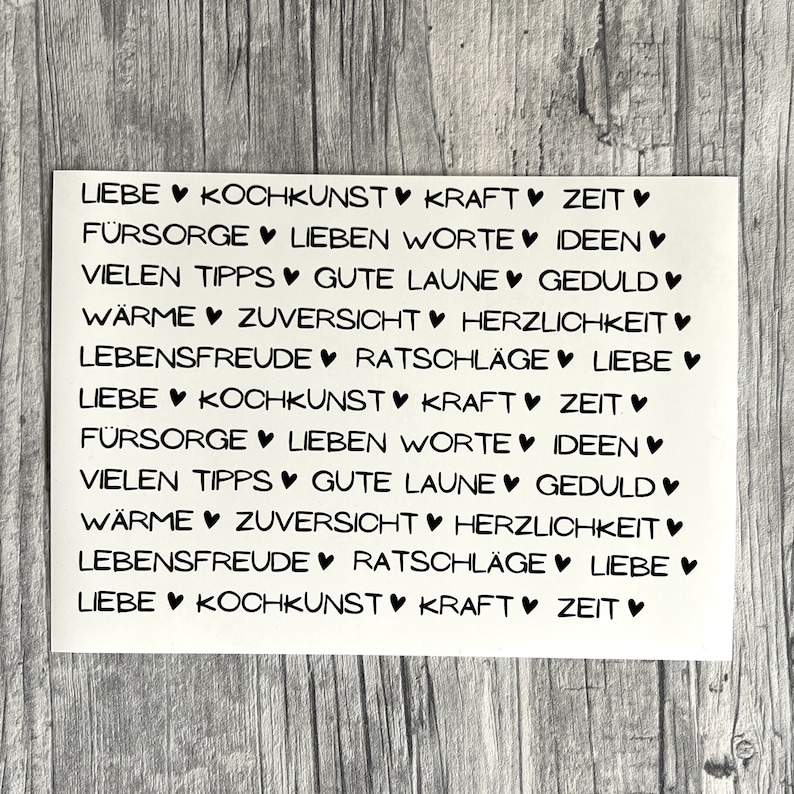 LIEBE ♥ KOCHKUNST ♥ KRAFT ♥ ZEIT ♥
FÜRSORGE ♥ LIEBEN WORTE ♥ IDEEN ♥
VIELEN TIPPS ♥ GUTE LAUNE ♥ GEDULD ♥
WÄRME ♥ ZUVERSICHT ♥ HERZLICHKEIT ♥
LEBENSFREUDE ♥ RATSCHLÄGE ♥ LIEBE ♥
LIEBE ♥ KOCHKUNST ♥ KRAFT ♥ ZEIT ♥
FÜRSORGE ♥ LIEBEN WORTE ♥ IDEEN ♥
VIELEN TIPPS ♥ GUTE LAUNE ♥ GEDULD ♥
WÄRME ♥ ZUVERSICHT ♥ HERZLICHKEIT ♥
LEBENSFREUDE ♥ RATSCHLÄGE ♥ LIEBE ♥
LIEBE ♥ KOCHKUNST ♥ KRAFT ♥ ZEIT ♥